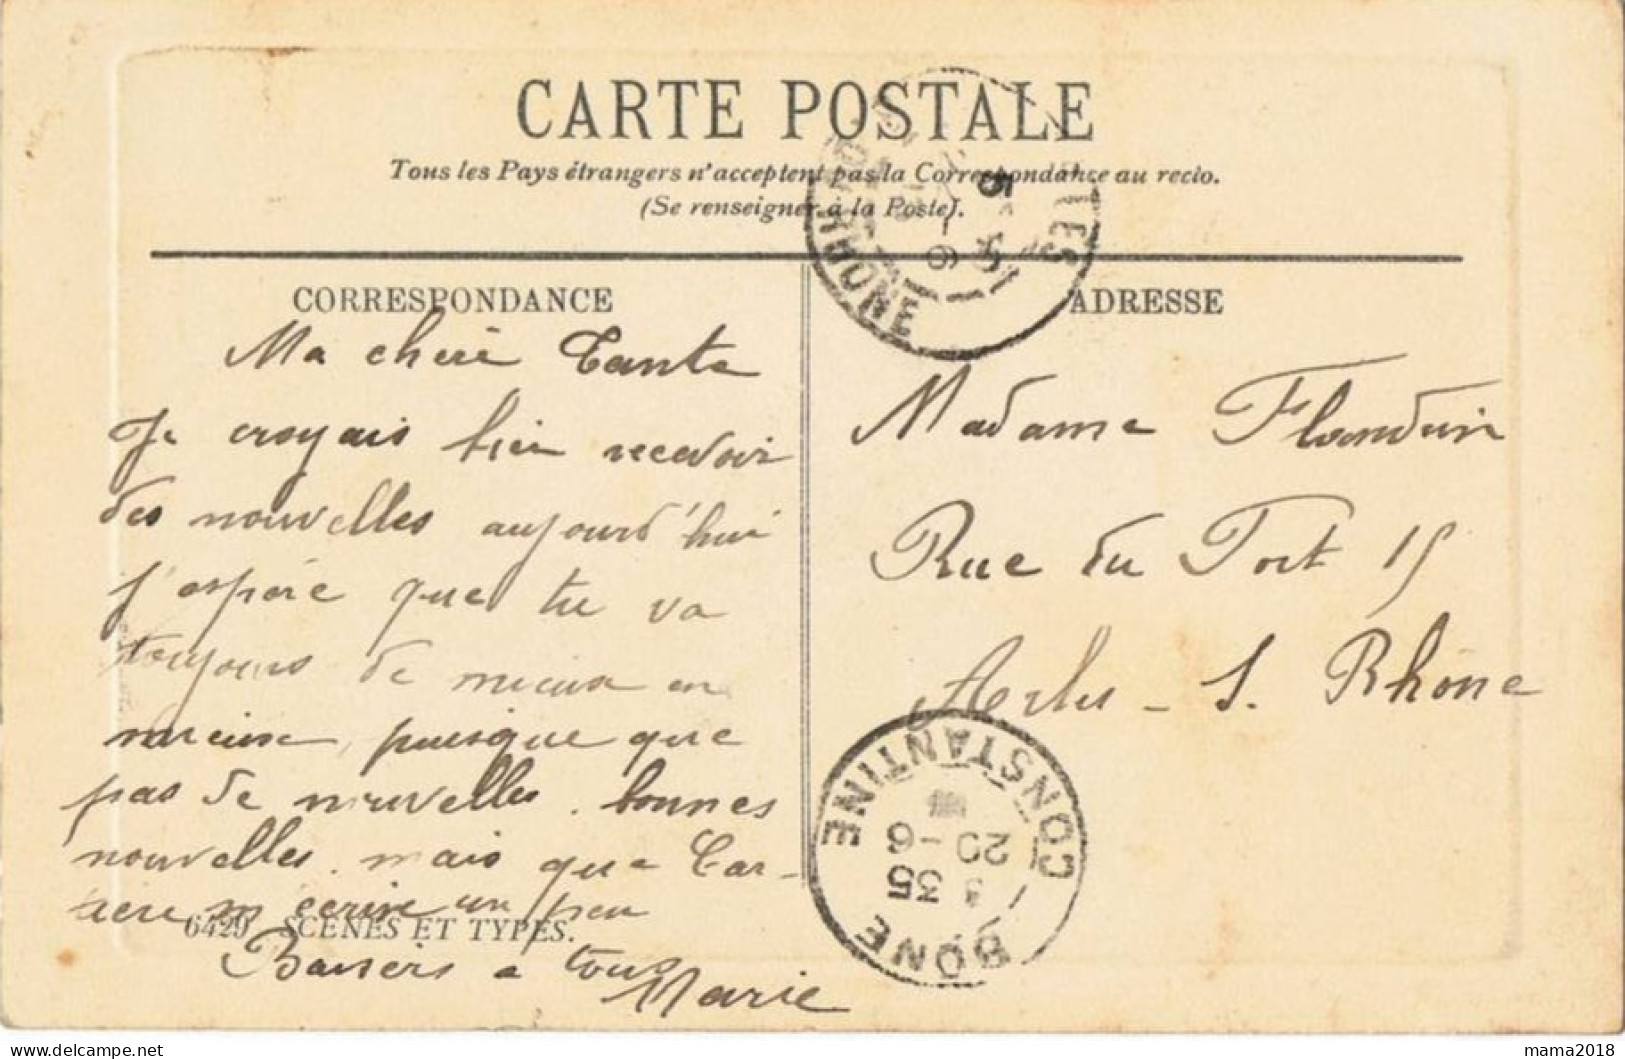 CARTE POSTALE
Tous les Pays étrangers n'acceptent pas la Correspondance au recto.
(Se renseigner à la Poste).
CORRESPONDANCE
Ma chère Tante
Je croyais bien recevoir
des nouvelles aujourd'hui
j'espère que tu va
toujours de mieux en
mieux, puisque que
pas de nouvelles. bonnes
nouvelles. mais que
m'écrive un peu
6429 SCÈNES ET TYPES.
Baisers a tous
Marie
ADRESSE
Madame Flandrin
Rue du Port 15
Arles - S. Rhône
RHONE
CONSTANTINE
20 - 6
35
BÔNE
mama2018